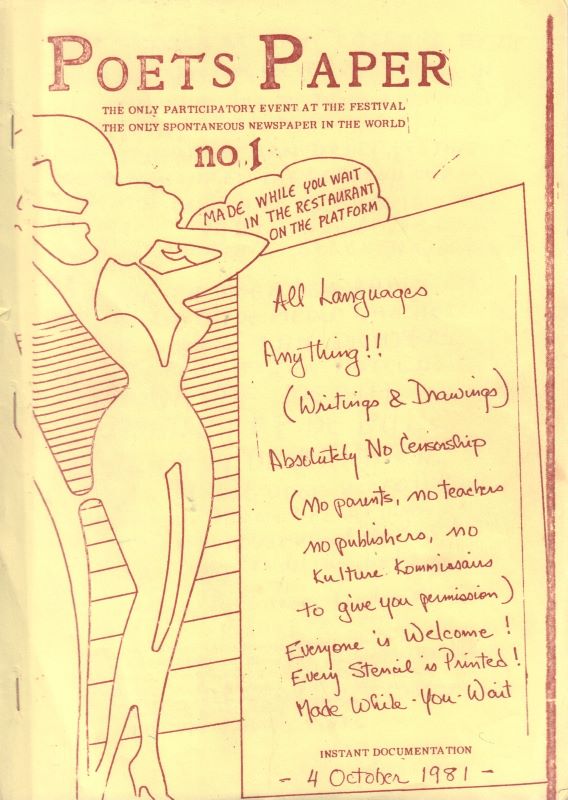 POETS PAPER
THE ONLY PARTICIPATORY EVENT AT THE FESTIVAL
THE ONLY SPONTANEOUS NEWSPAPER IN THE WORLD
no 1
MADE WHILE YOU WAIT
IN THE RESTAURANT
ON THE PLATFORM
All Languages
Anything!!
(Writings & Drawings)
Absolutely No Censorship
(No parents, no teachers
no publishers, no
Kulture Kommissairs
to give you permission)
Everyone is Welcome!
Every Stencil is Printed!
Made While-You-Wait
INSTANT DOCUMENTATION
- 4 October 1981 -